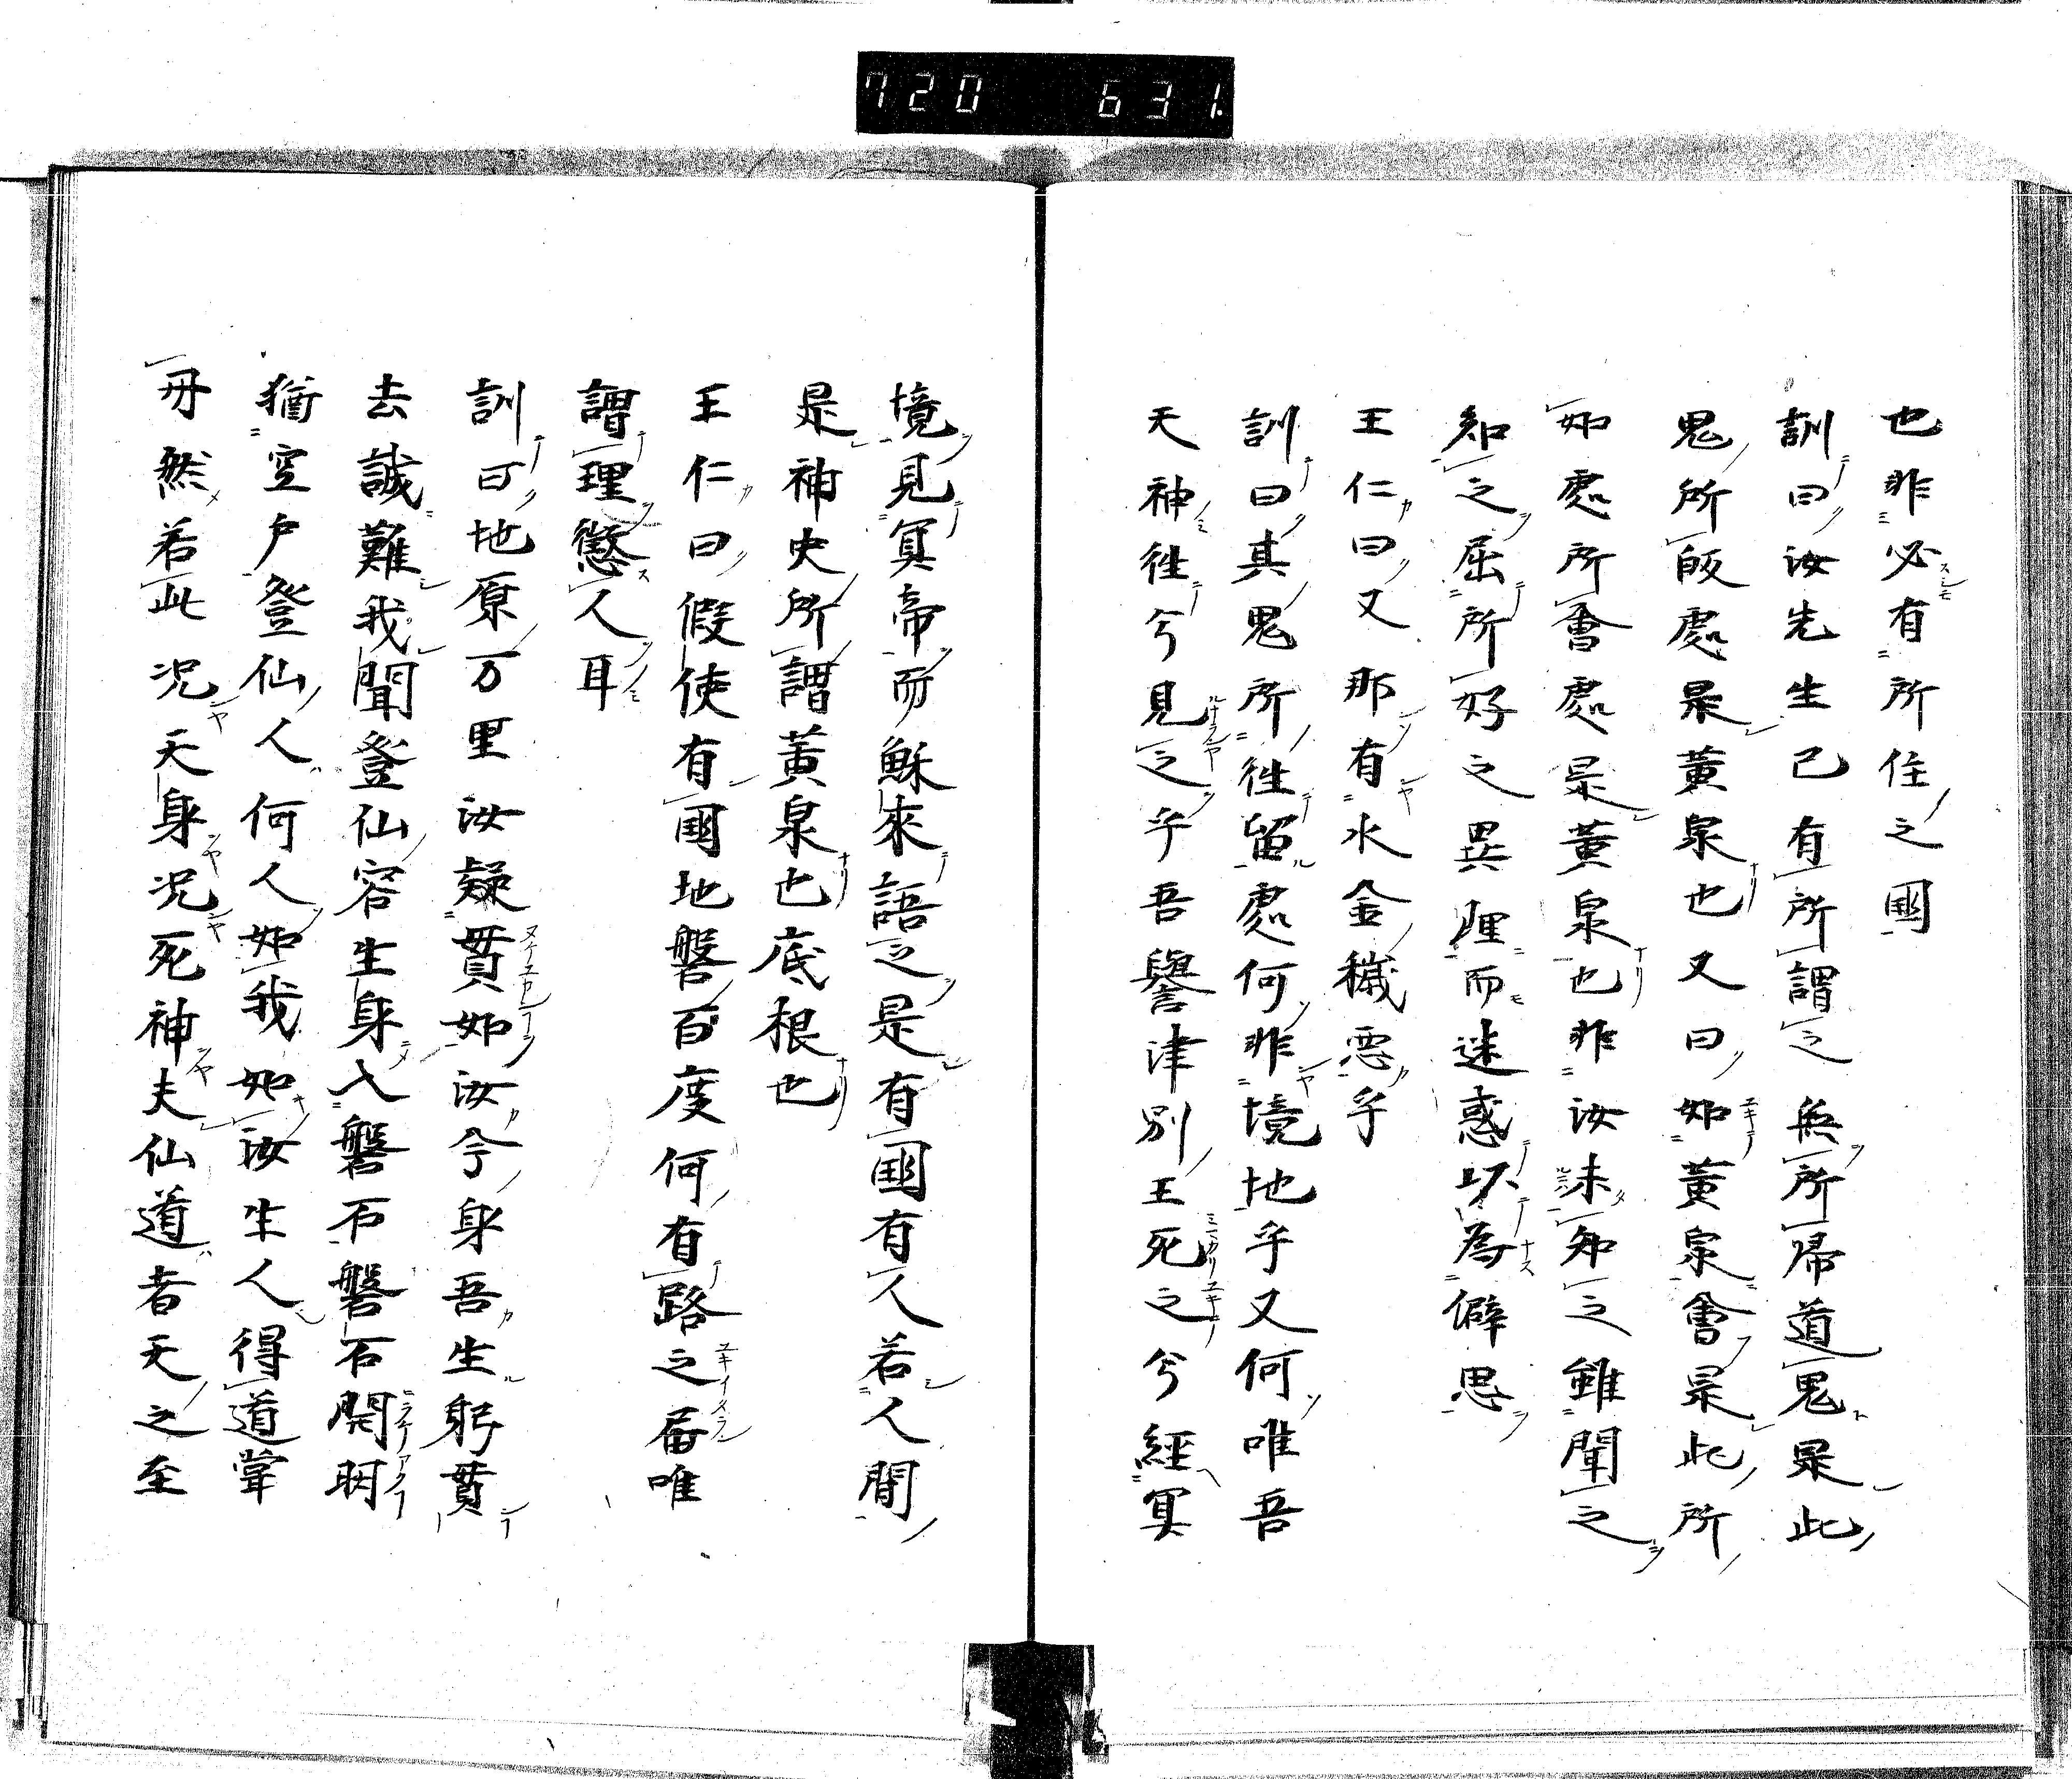 720 631.
也非必有所住之國
訓曰汝先生己有所謂之無所帰道鬼是此
鬼所皈處是黄泉也又曰如黄泉會是此所
如處所會處是黄泉也非汝未知之雖聞之
知之屈所好之異理而迷惑坏為僻思
王仁曰又那有水金穢惡乎
訓曰其鬼所徃留處何非境地乎又何唯吾
天神徃兮見之乎吾譽津別王死之兮經冥
境見冥帝而穌來語之是有國有人若人間
是神史所謂黄泉也底根也
王仁曰假使有國地磐百度何有路之届唯
謂理懲人耳
訓曰地厚万里汝疑貫如汝今身吾生躬貫
去誠難我聞登仙容生身入磐石磐石開明
猶空戸登仙人何人如我如汝生人得道掌
毋然若此况天身况死神夫仙道者天之至